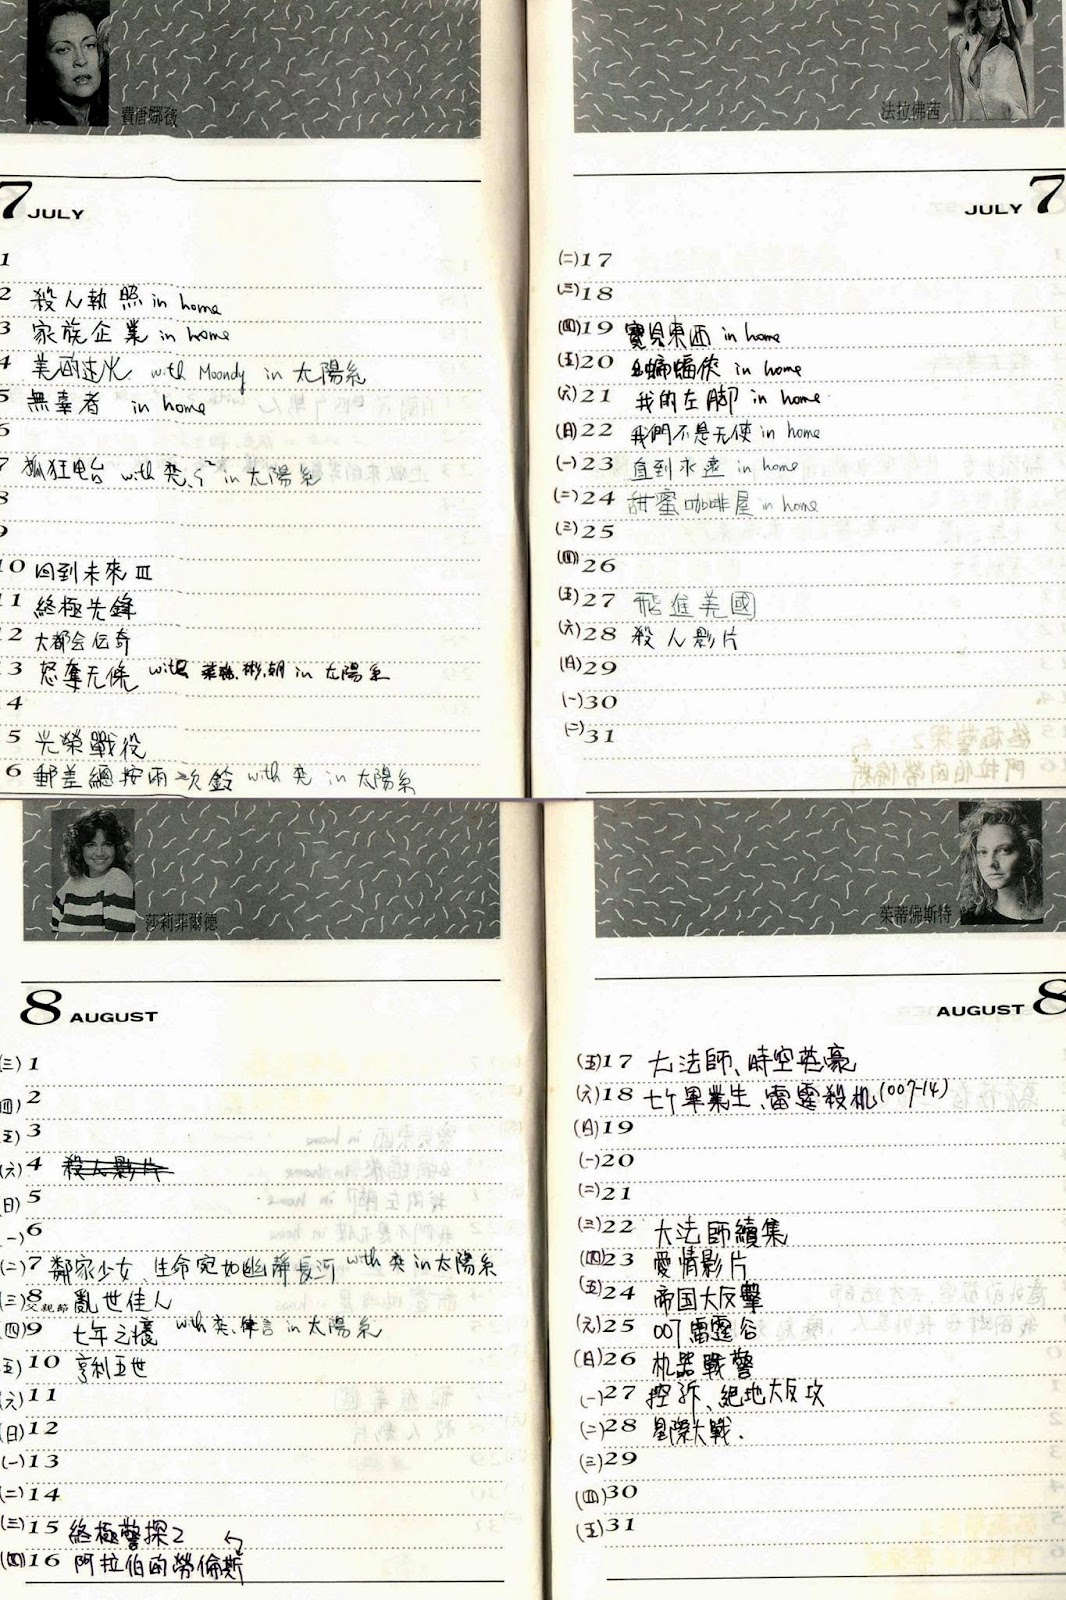 費唐娜薇
7 JULY
1
2 殺人執照 in home
3 家族企業 in home
4 with Moondy in 太陽系
5 無辜者 in home
6
7 瘋狂电台 with 奕 in 太陽系
8
9
10 回到未來 III
11 終極先鋒
12 大都会伝奇
13 怒奪 with 彬,朝 in 太陽系
14
15 光榮戰役
16 郵差總按兩次鈴 with 奕 in 太陽系
法拉佛茜
JULY 7
(二)17
(三)18
(四)19 寶貝東西 in home
(五)20 蝙蝠俠 in home
(六)21 我的左脚 in home
(日)22 我們不是天使 in home
(一)23 直到永遠 in home
(二)24 甜蜜咖啡屋 in home
(三)25
(四)26
(五)27 飛進美國
(六)28 殺人影片
(日)29
(一)30
(二)31
莎莉菲爾德
8 AUGUST
(三)1
(四)2
(五)3
(六)4 殺人影片
(日)5
(一)6
(二)7 鄰家少女、生命宛如幽靜長河 with 奕 in 太陽系
(三)8 父親節 亂世佳人
(四)9 七年之癢 with 奕, 律言 in 太陽系
(五)10 亨利五世
(六)11
(日)12
(一)13
(二)14
(三)15 終極警探2
(四)16 阿拉伯的勞倫斯
茱蒂佛斯特
AUGUST 8
(五)17 大法師、時空英豪
(六)18 七个畢業生、雷霆殺机(007-14)
(日)19
(一)20
(二)21
(三)22 大法師續集
(四)23 愛情影片
(五)24 帝国大反擊
(六)25 007雷霆谷
(日)26 机器戰警
(一)27 控訴、絕地大反攻
(二)28 星際大戰.
(三)29
(四)30
(五)31